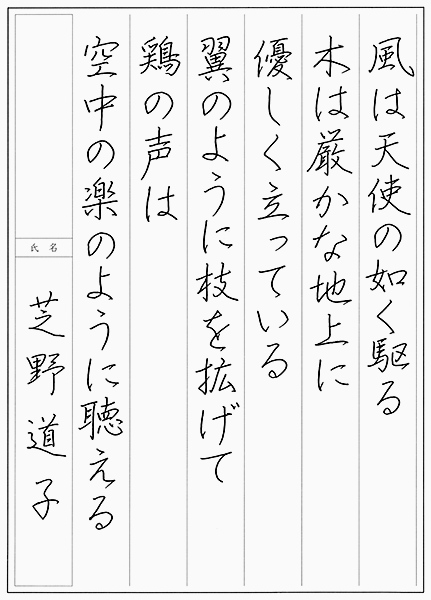 風は天使の如く駆る
木は厳かな地上に
優しく立っている
翼のように枝を拡げて
鶏の声は
空中の楽のように聴える
氏名
芝野道子